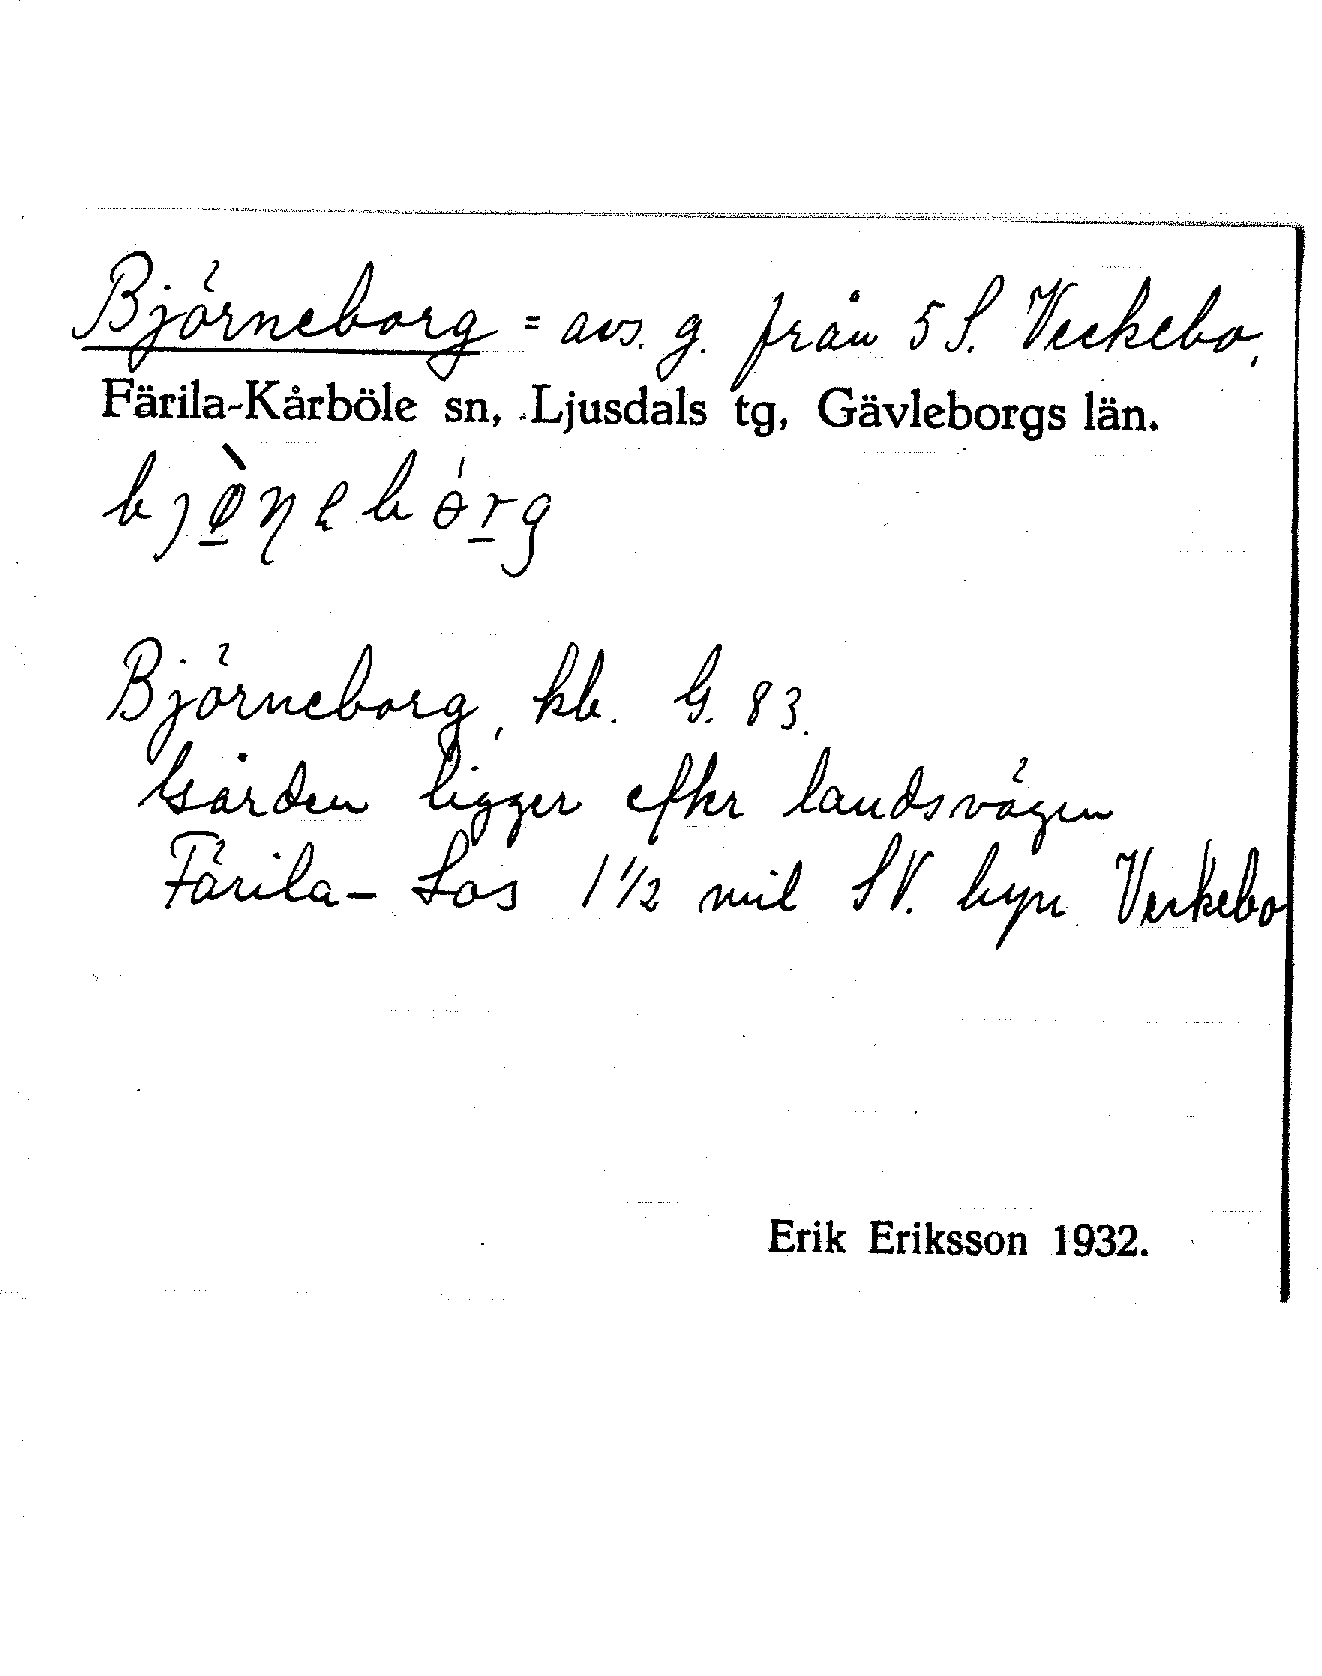 Björneborg = avs. g. från 5 S. Veckebo,
Färila-Kårböle sn, Ljusdals tg, Gävleborgs län.
bjø̀ŋebɵ́rg
Björneborg, kb. G. 83.
Gården ligger efter landsvägen
Färila - Los 1 1/2 mil SV. byn Veckebo
Erik Eriksson 1932.